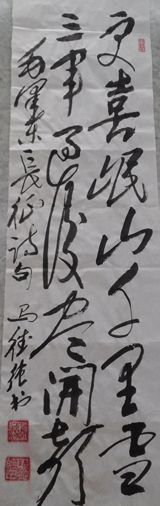 更喜岷山千里雪
三军过后尽开颜
毛泽东长征诗句 马德强书